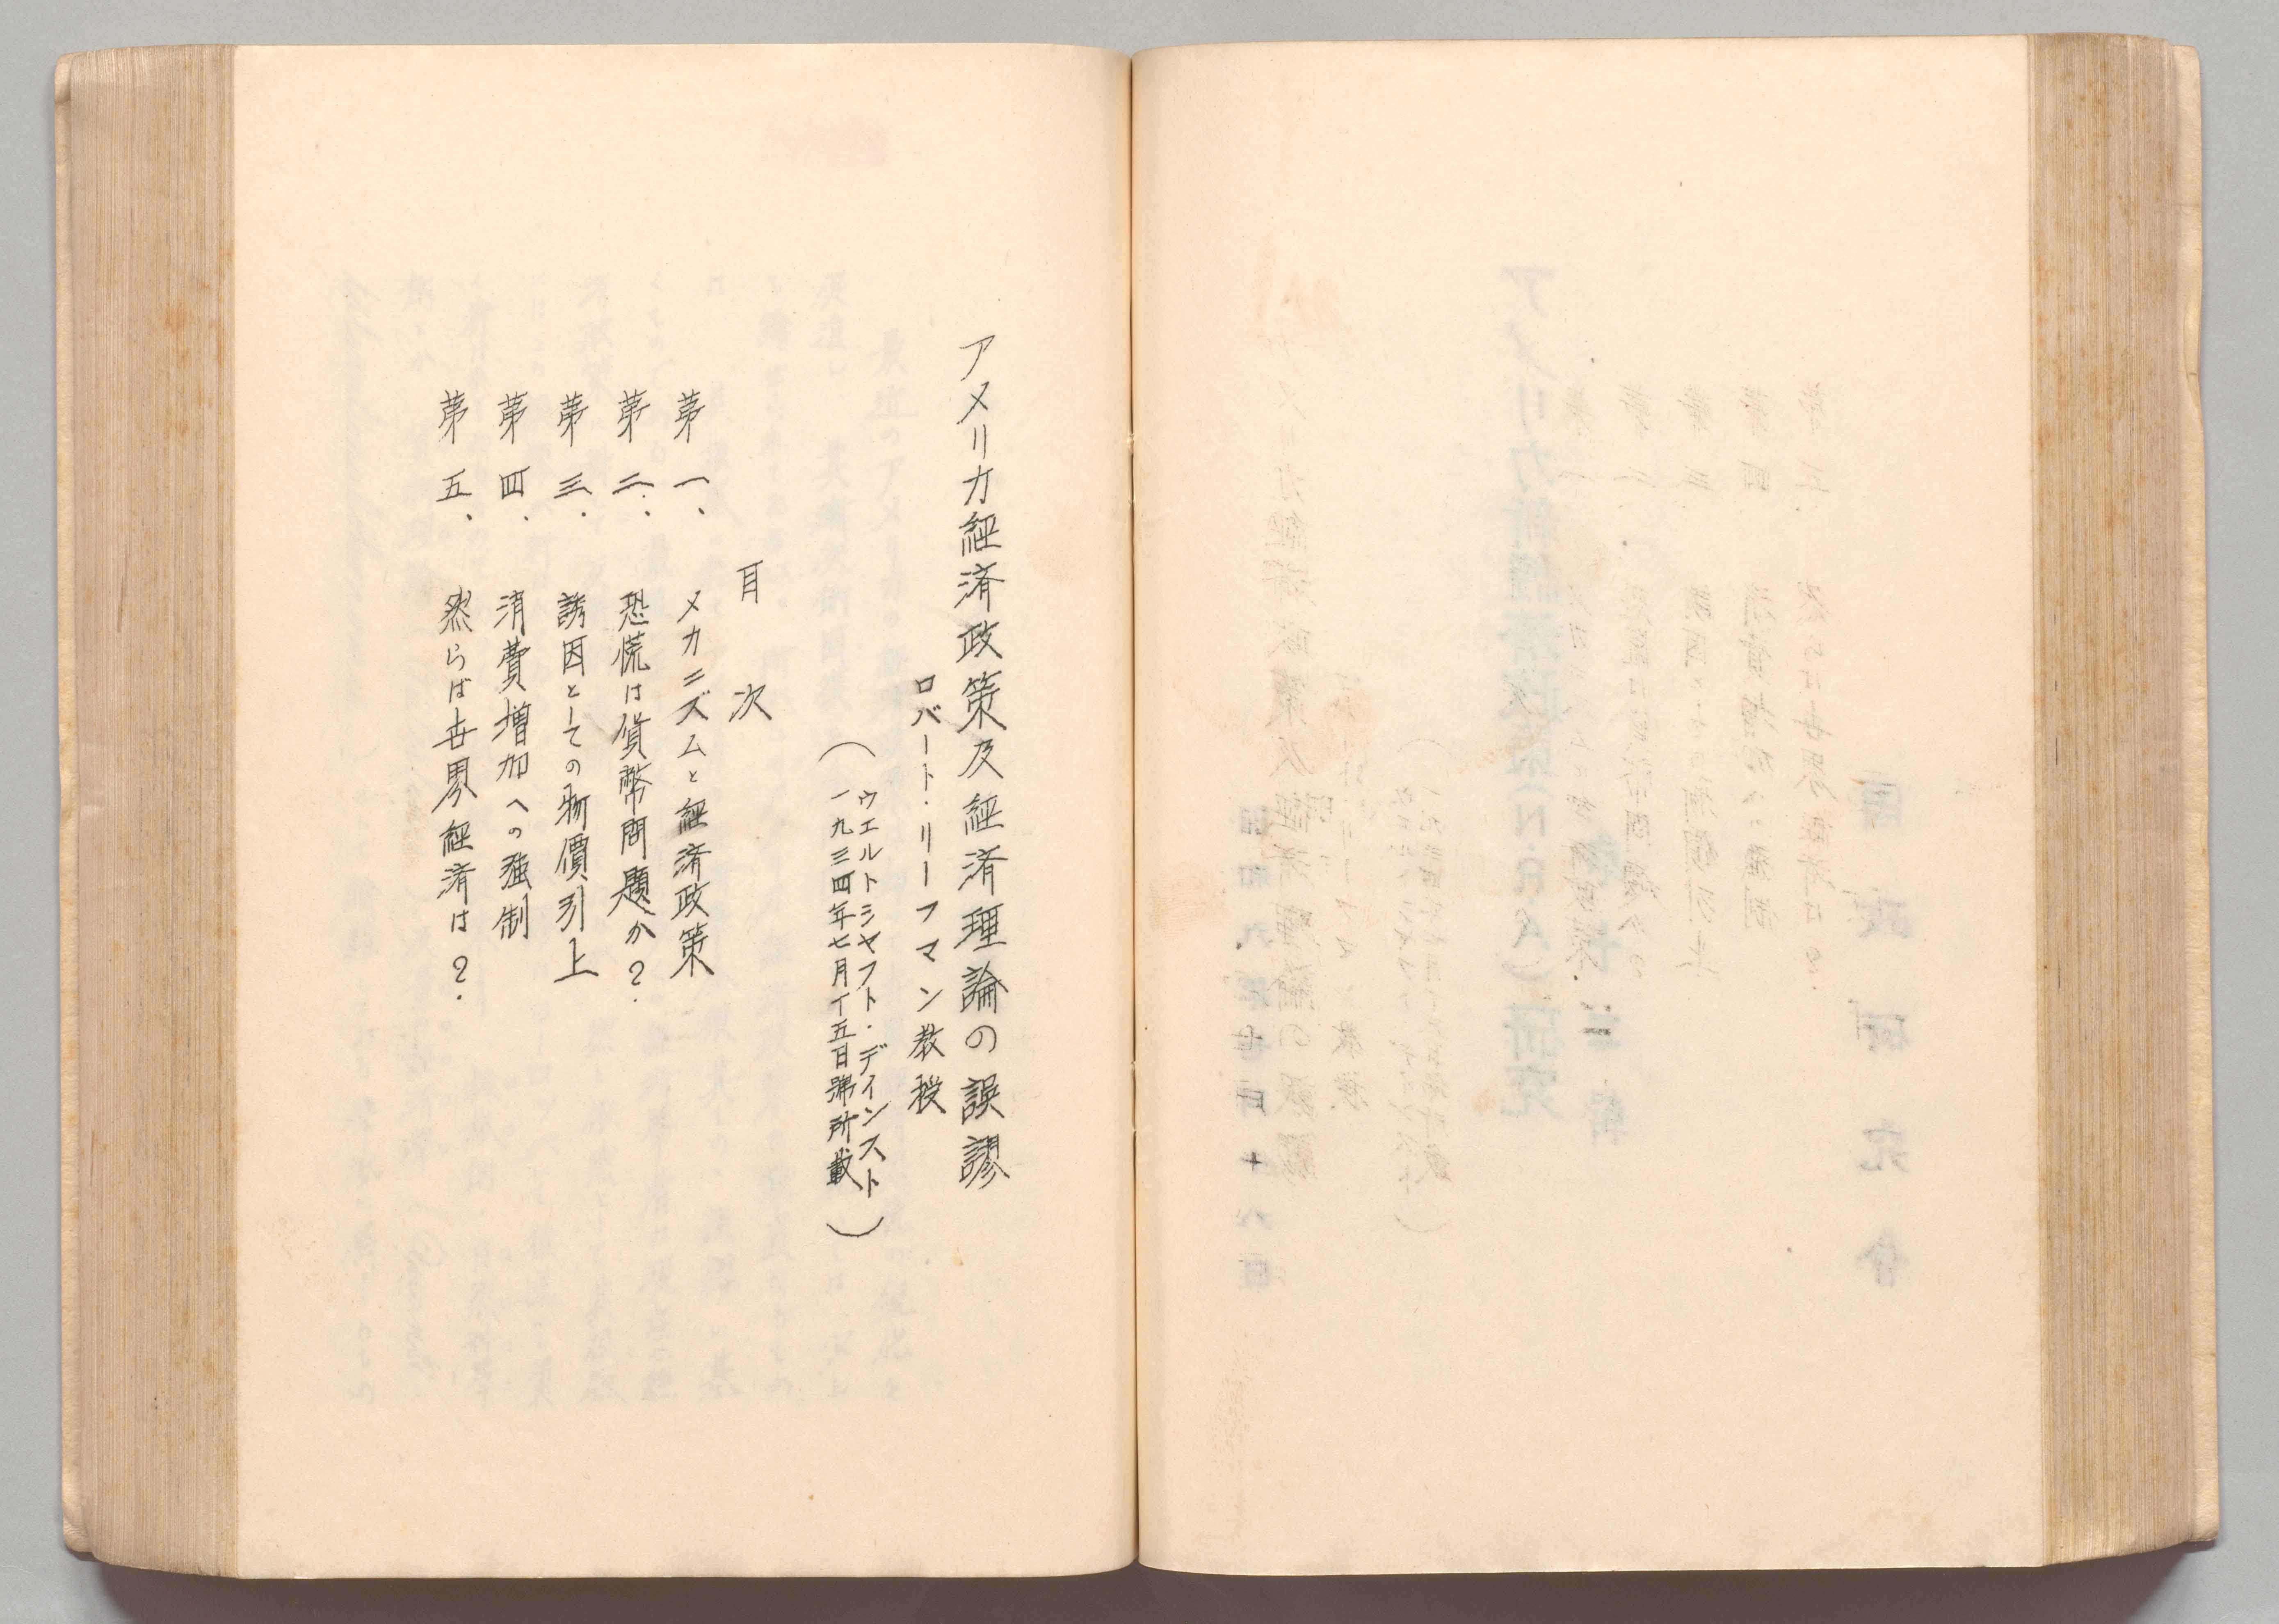 アメリカ經済政策及経済理論の誤謬
ロバート・リーフマン教授
(ウエルトシヤフト・デインスト
一九三四年七月十五日號所載)
目次
第一、メカニズムと経済政策
第二、恐慌は貨幣問題か?
第三、誘因としての物價引上
第四、消費増加への強制
第五、然らば世界経済は?